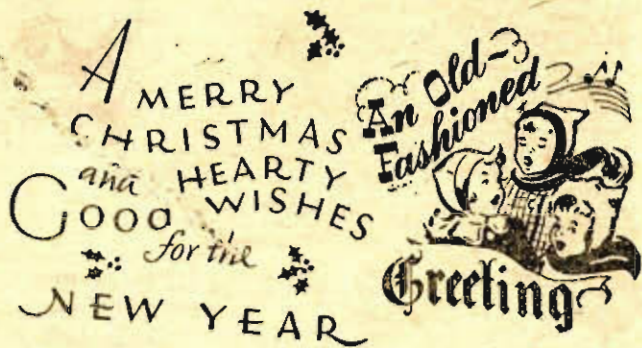 A MERRY
CHRISTMAS
and HEARTY
Good WISHES
for the
NEW YEAR
An Old-
Fashioned
Greeting